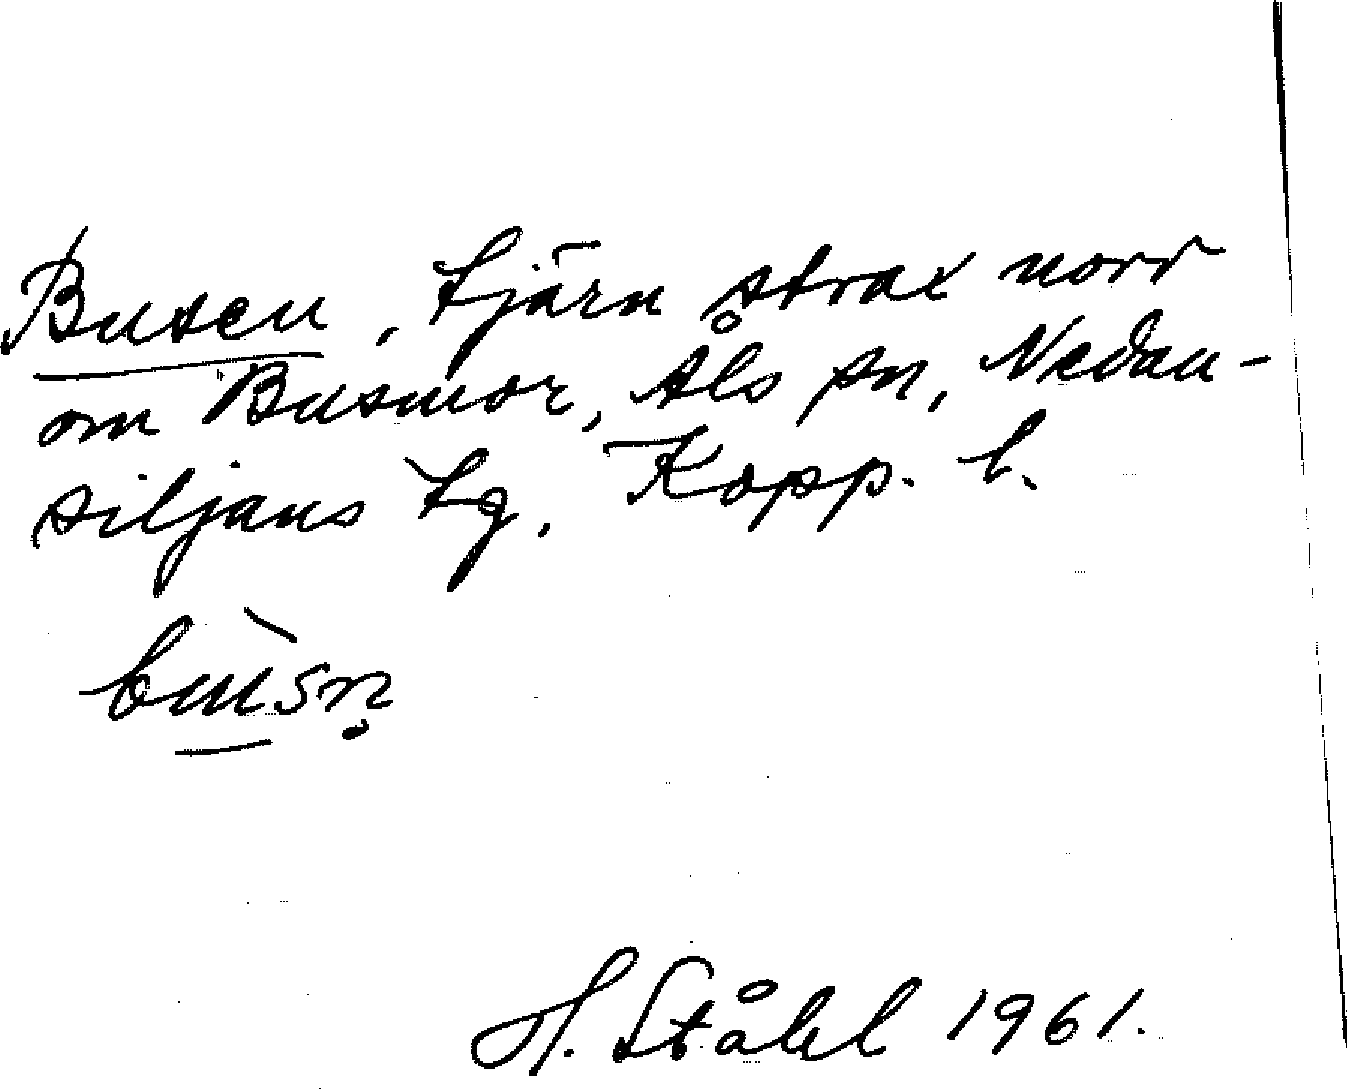 Busen, tjärn strax norr
om Busmor, Åls sn, Nedan-
siljans tg. Kopp. l.
bu̠̇̀sn̥
H. Ståhl 1961.